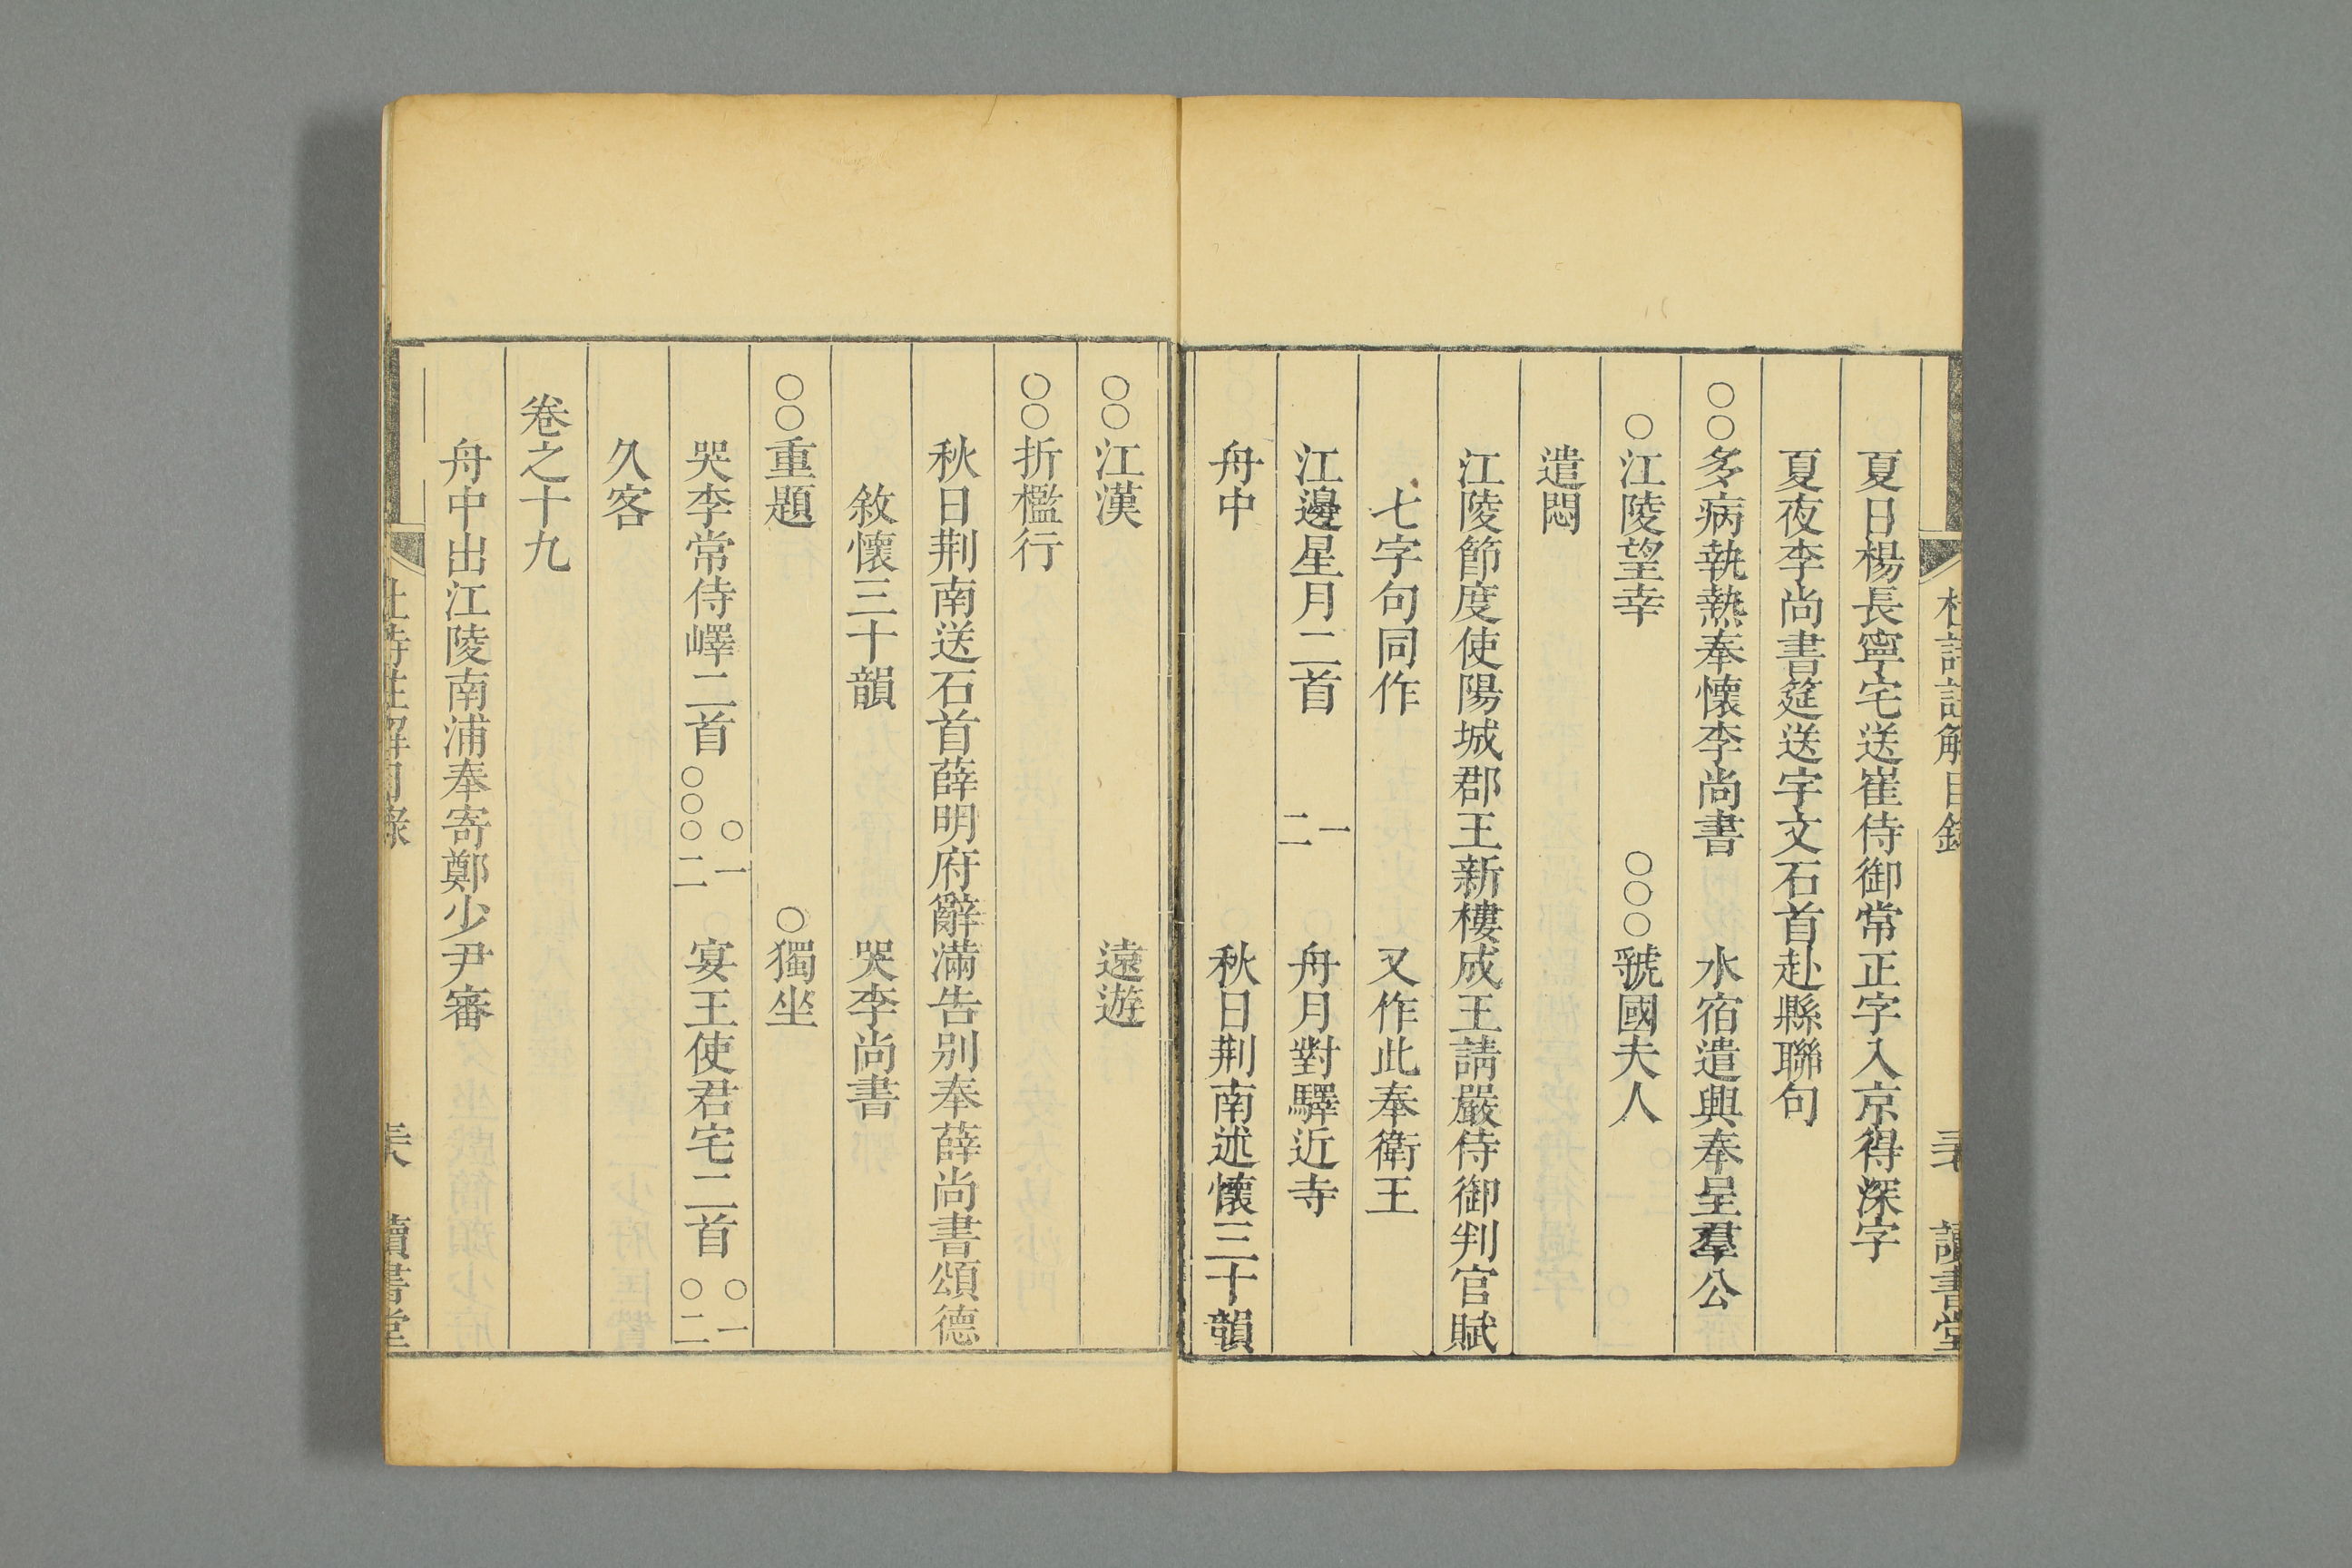 夏日楊長寧宅送崔侍御常正字入京得深字
夏夜李尚書筵送宇文石首赴縣聯句
○○多病執熱奉懷李尚書　水宿遣興奉呈羣公
○江陵望幸　○○○虢國夫人
遣悶
江陵節度使陽城郡王新樓成王請嚴侍御判官賦
七字句同作　又作此奉衛王
江邊星月二首　一二　舟月對驛近寺
舟中　秋日荆南述懷三十韻
○○江漢　遠遊
○○折檻行
秋日荆南送石首薛明府辭滿告別奉薛尚書頌德
敘懷三十韻　哭李尚書
○○重題　○獨坐
哭李常侍嶧二首　○一○○○二　宴王使君宅二首　○一○二
久客
卷之十九
舟中出江陵南浦奉寄鄭少尹審
杜詩註解目錄　讀書堂